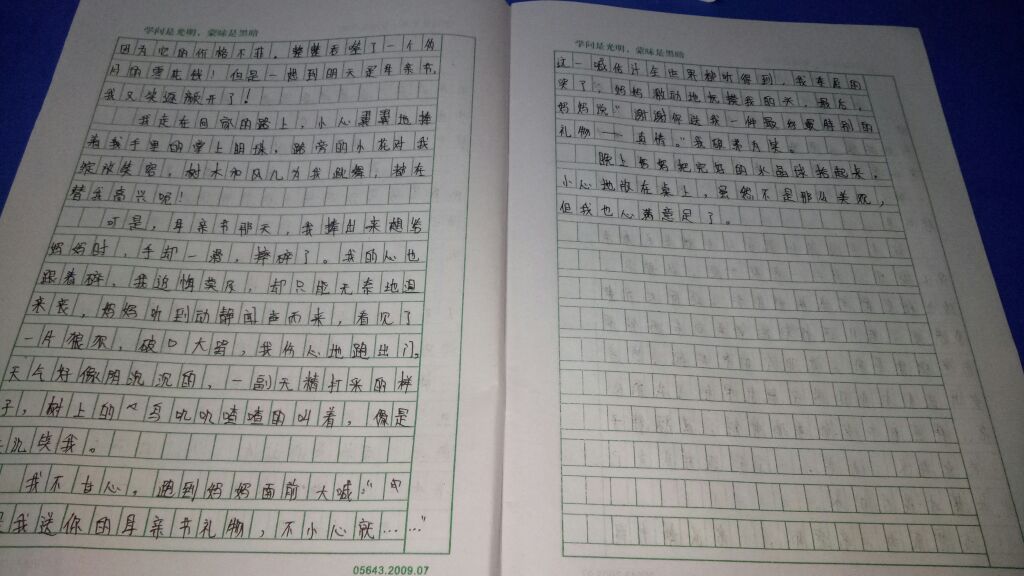 学问是光明，蒙昧是黑暗
因为它的价格不菲，整整花掉了一个多
月的零花钱！但是一想到明天是母亲节，
我又笑逐颜开了！
我走在回家的路上，小心翼翼地捧
着我手里的掌上明珠，路旁的小花对我
绽放笑容，树木和风儿为我跳舞，都在
替我高兴呢！
可是，母亲节那天，我捧出来想给
妈妈时，手却一滑，摔碎了。我的心也
跟着碎，我追悔莫及，却只能无奈地
来丧，妈妈听到动静闻声而来，看见了
一片狼藉，破口大骂，我伤心地跑出门。
天气好像阴沉沉的，一副无精打采的样
子，树上的鸟叽叽喳喳的叫着，像是
沉笑我。
我不甘心。跑到妈妈面前大喊：“
是我送你的母亲节礼物，不小心就……”
05643.2009.07
学问是光明，蒙昧是黑暗
这一喊估计全世界都听得到，我
笑了；妈妈激动地抚摸我的头，最后，
妈妈说“谢谢你送我一件最特别的
礼物——真情。”我破涕为笑。
晚上妈妈把完好的水晶球拾起来，
小心地放在桌上，虽然不是那么美观，
但我也心满意足了。